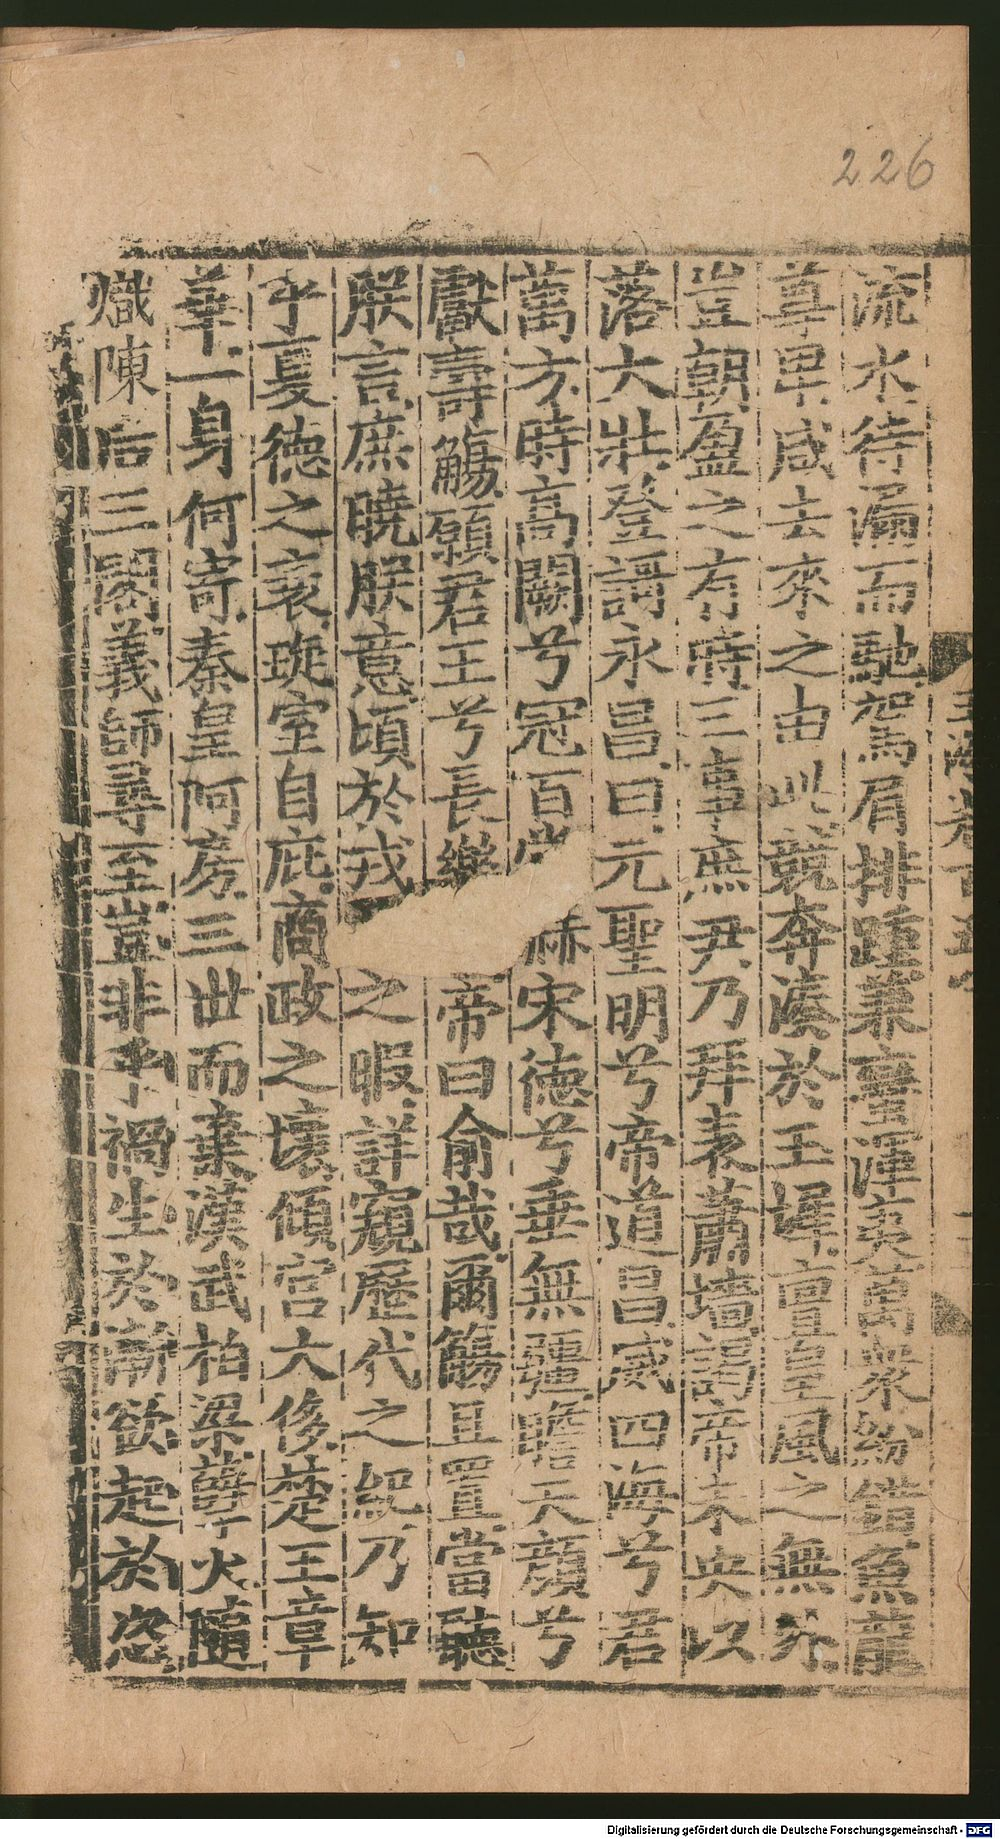 226
流水待漏而馳駕肩排踵兼臺渾夷萬衆紛錯魚龍
尊卑咸去來之由此競奔湊於王墀亶皇風之無外
豈朝盈之有時三事庶尹乃拜表蕭墙謁帝未央以
落大壯登謌永昌曰元聖明兮帝道昌威四海兮君
萬方時高闕兮冠百常赫宋德兮垂無疆瞻天顏兮
獻壽觴願君王兮長樂帝曰俞哉爾觴且置當聽
朕言庶曉朕意頃於戎之暇詳窺歷代之紀乃知
乎夏德之衰琁室自庇商政之壞傾宮大侈楚王章
華一身何寄秦皇阿房三世而棄漢武柏梁孽火隨
熾陳后三閣義師尋至豈非乎禍生於漸欲起於恣
Digitalisierung gefördert durch die Deutsche Forschungsgemeinschaft - DFG